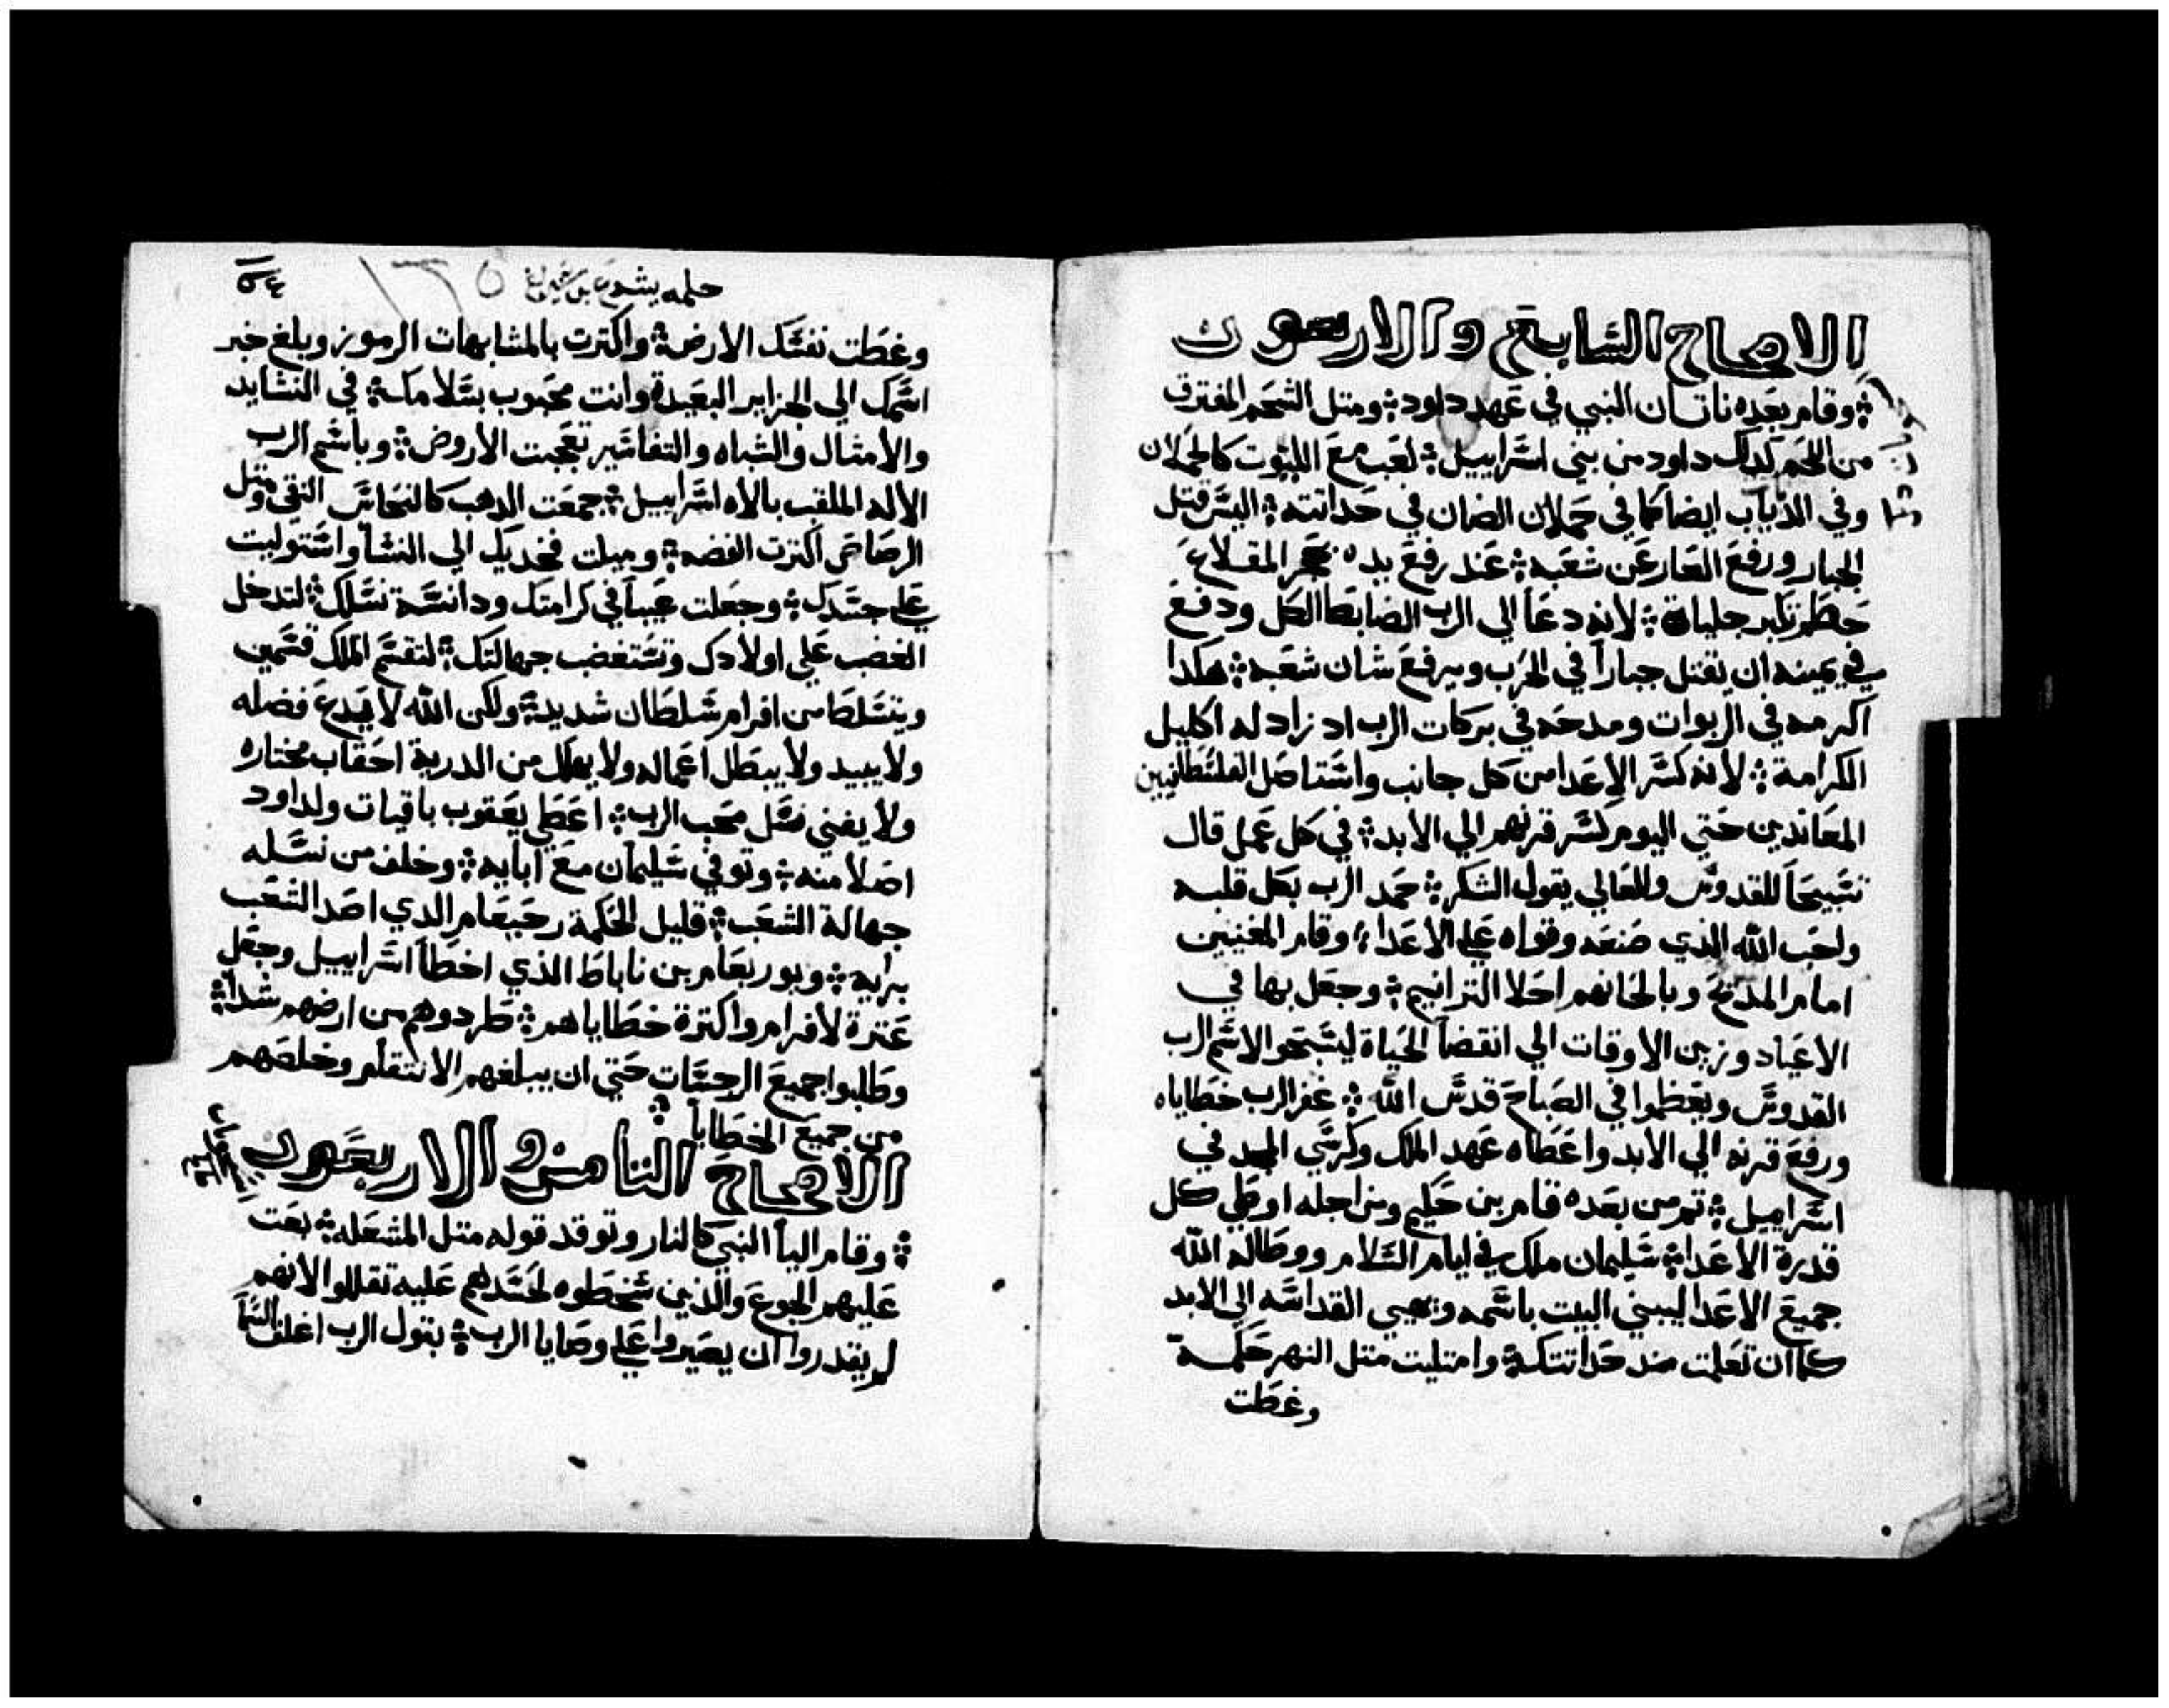 الاصحاح السابع والاربعون
وقام بعده ناتان النبي في عهد داود ومتل الشحم المفترق
من اللحم كدلك داود من بني اسراييل لعب مع الليوت كالحملان
وفي الدياب ايضا كما في حملان الضان في حداتته اليس قتل
الجبار ورفع العار عن شعبه عند رفع يده بحجر المقلاع
حطم تكبر جلياة لانه دعا الي الرب الضابط الكل ودفع
في يمينه ان يقتل جباراً في الحرب ويرفع شان شعبه هكدا
اكرمه في الربوات ومدحه في بركات الرب اد زاد له اكليل
الكرامة لانه كسر الاعدا من كل جانب واستاصل الفلسطانيين
المعاندين حتي اليوم كسر قرنهم الي الابد في كل عمل قال
تسبيحاً للقدوس وللعالي بقول الشكر حمد الرب بكل قلبه
واحب الله الذي صنعه وقواه علي الاعداء وقام المغنيين
امام المدبح وبالحانهم احلا الترانيم وجعل بها في
الاعياد وزين الاوقات الي انقضا الحياة ليسبحوا لاسم الرب
القدوس ويعظموا في الصباح قدس الله غفر الرب خطاياه
ورفع قرنه الي الابد واعطاه عهد الملك وكرسي المجد في
اسراييل تم من بعده قام بن حكيم ومن اجله اوطي كل
قدرة الاعدا سليمان ملك في ايام السلام ووطا له الله
جميع الاعدا ليبني البيت باسمه ويهيي القداسه الي الابد
كما ان تعلمت مند حداتتك وامتليت متل النهر حكمة
وغطت
حكمه يشوع بن شيراخ ١٣٥
٥٤
وغطت نفسك الارض واكترت بالمشابهات الرموز وبلغ خبر
اسمك الي الجزاير البعيدة وانت محبوب بسلامك في النشايد
والامثال والشباه والتفاسير تعجبت الاروض وباسم الرب
الاله الملقب بالاه اسراييل جمعت الدهب كالنحاس النقي ومتل
الرصاص اكترت الفضه وميلت فخديك الي النسا واستوليت
علي جسدك وجعلت عيباً في كرامتك ودانسة نسلك لتدخل
الغضب علي اولادك وتستغضب جهالتك لتقسم الملك قسمين
ويتسلط من افرام سلطان شديد ولكن الله لا يدع فضله
ولا يبيد ولا يبطل اعماله ولا يهلك من الدرية احقاب مختاره
ولا يفني نسل محب الرب اعطي يعقوب باقيات ولداود
اصلا منه وتوفي سليمان مع ابايه وخلف من نسله
جهالة الشعب قليل الحكمة رحبعام الدي اصد الشعب
برايه ويوربعام بن ناباط الذي اخطا اسراييل وجعل
عترة لافرام واكترة خطاياهم طردوهم من ارضهم شداً
وطلبوا جميع الرجسات حتي ان يبلغهم الانتقام وخلصهم
من جميع الخطايا
الاصحاح التامن والاربعون
وقام اليا النبي كالنار وتوقد قوله متل المشعله بعت
عليهم الجوع والذين سخطوه لحسدهم عليه تقللوا لانهم
لم يقدروا ان يصيروا علي وصايا الرب بقول الرب اغلق السما